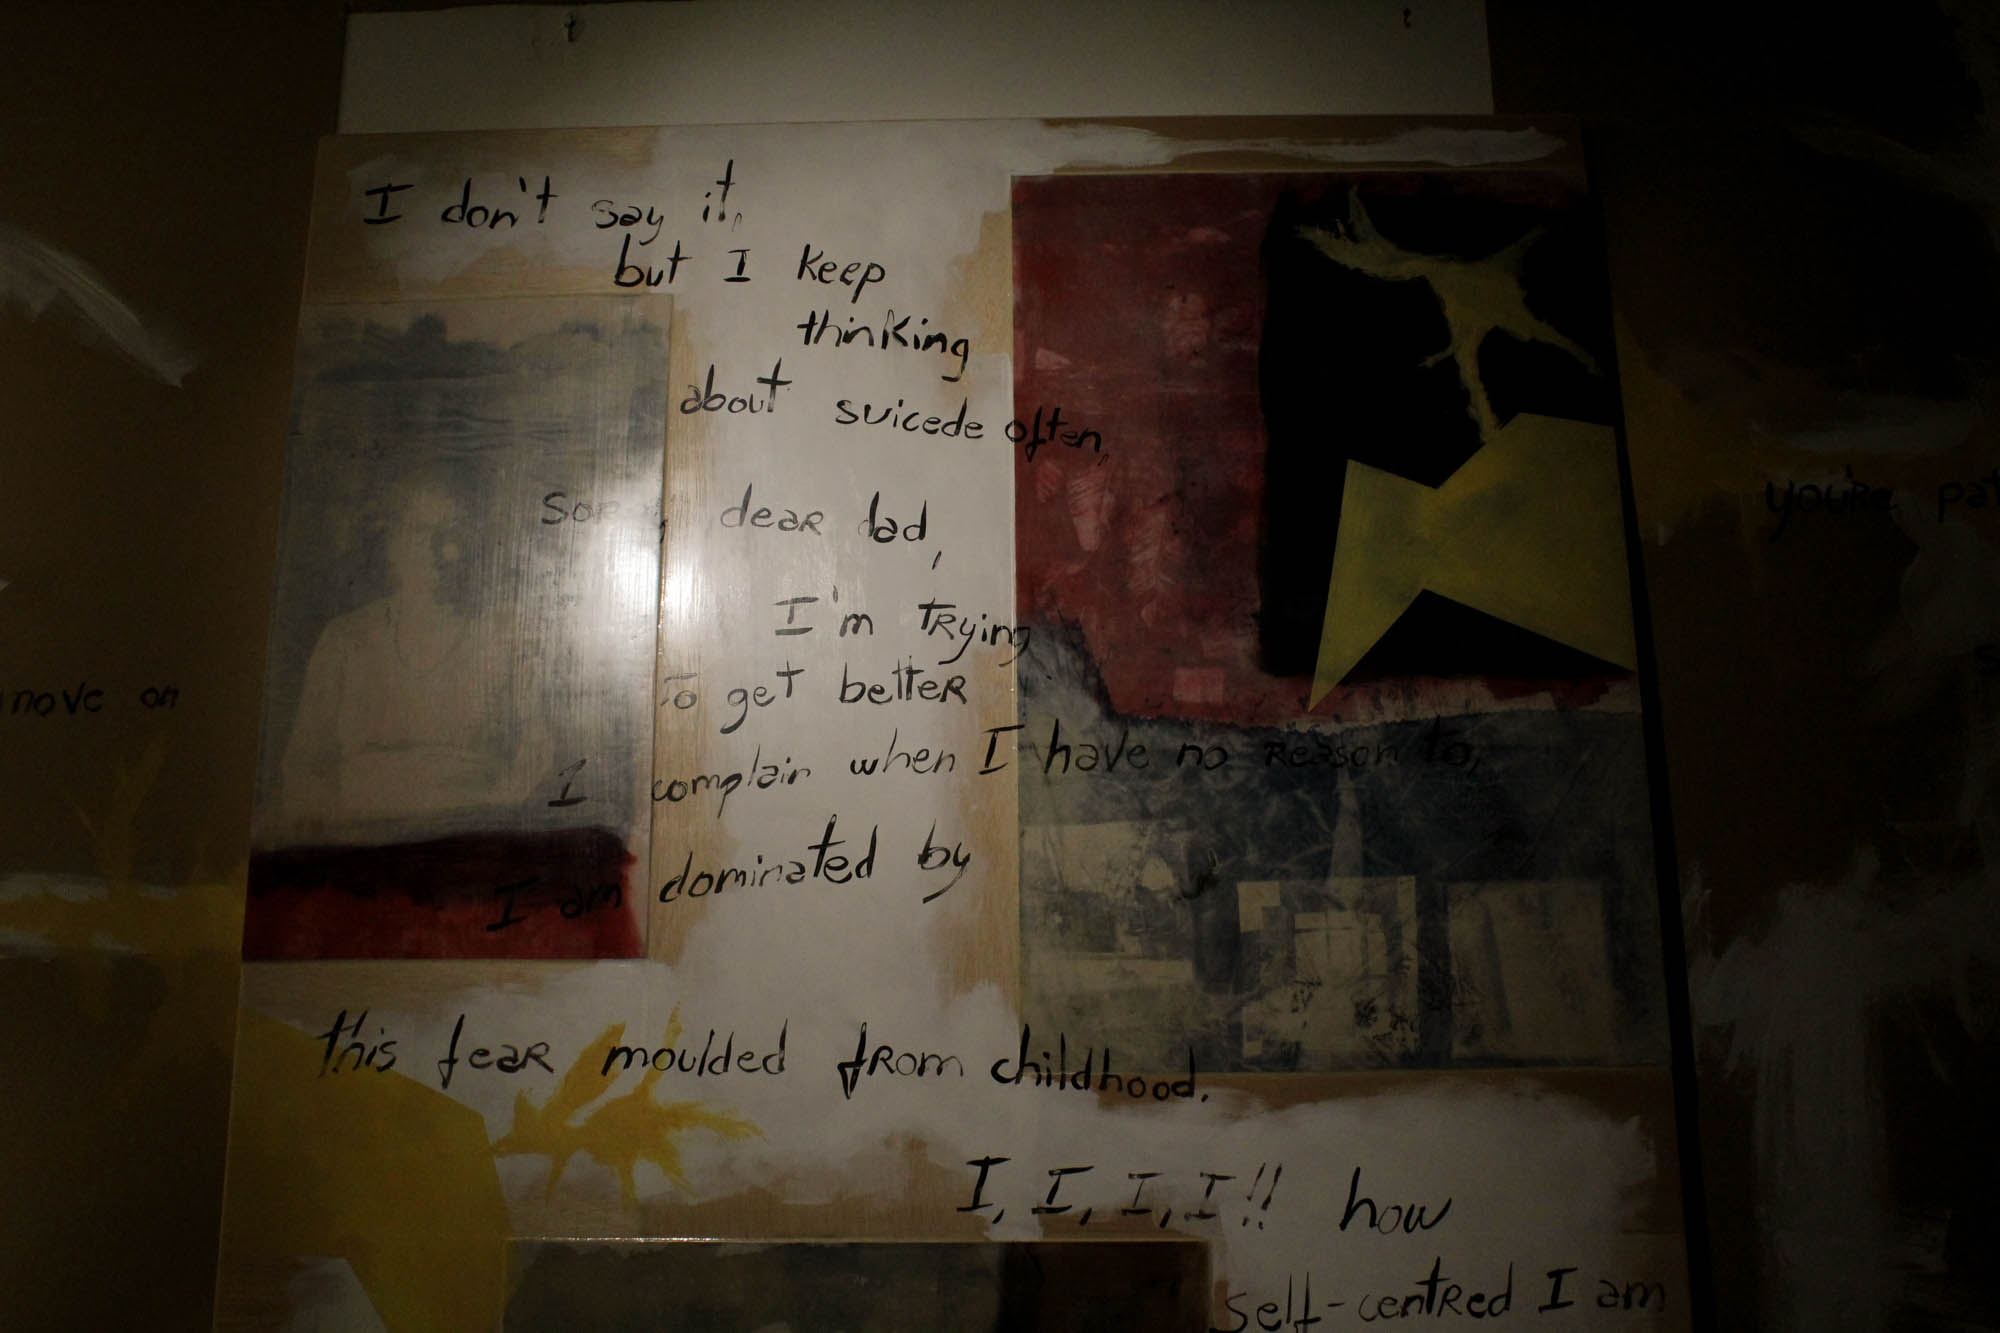 I don't say it,
but I keep
thinking
about suicede often,
sorry, dear dad,
I'm trying
to get better
I complain when I have no reason to,
I am dominated by
this fear moulded from childhood.
I, I, I, I!! how
self-centred I am
move on
you're